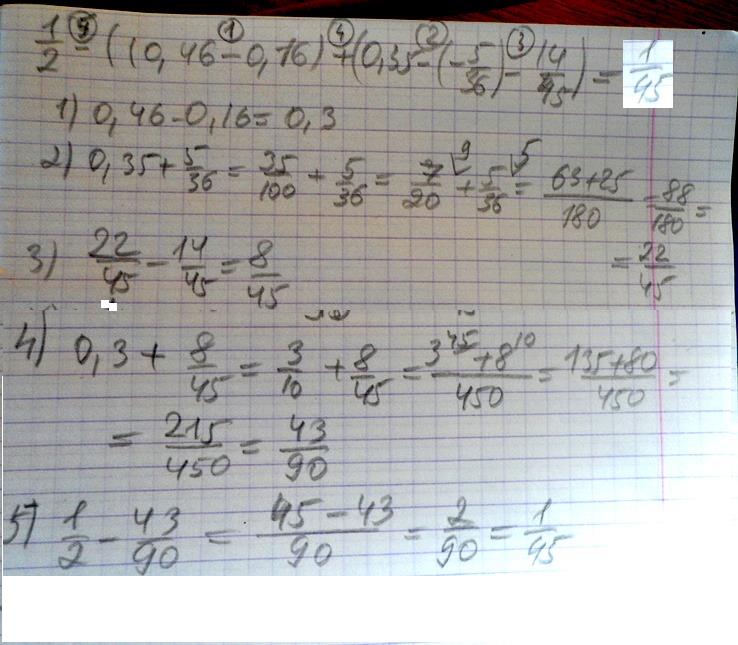 1/2 - ((0,46 - 0,16) + (0,35 - (-5/36) - 14/45) = 1/45
1) 0,46 - 0,16 = 0,3
2) 0,35 + 5/36 = 35/100 + 5/36 = 7/20 + 5/36 = (63+25)/180 = 88/180 =
= 22/45
3) 22/45 - 14/45 = 8/45
4) 0,3 + 8/45 = 3/10 + 8/45 = (3^45 + 8^10)/450 = (135+80)/450 =
= 215/450 = 43/90
5) 1/2 - 43/90 = (45 - 43)/90 = 2/90 = 1/45